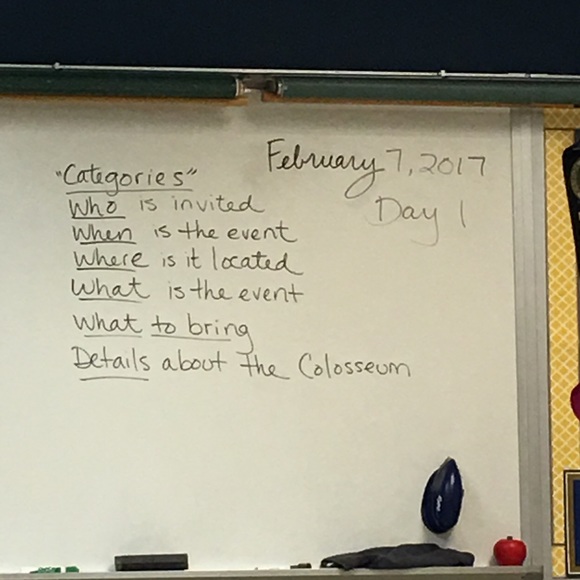 February 7, 2017
Day 1
"Categories"
Who is invited
When is the event
Where is it located
What is the event
What to bring
Details about the Colosseum